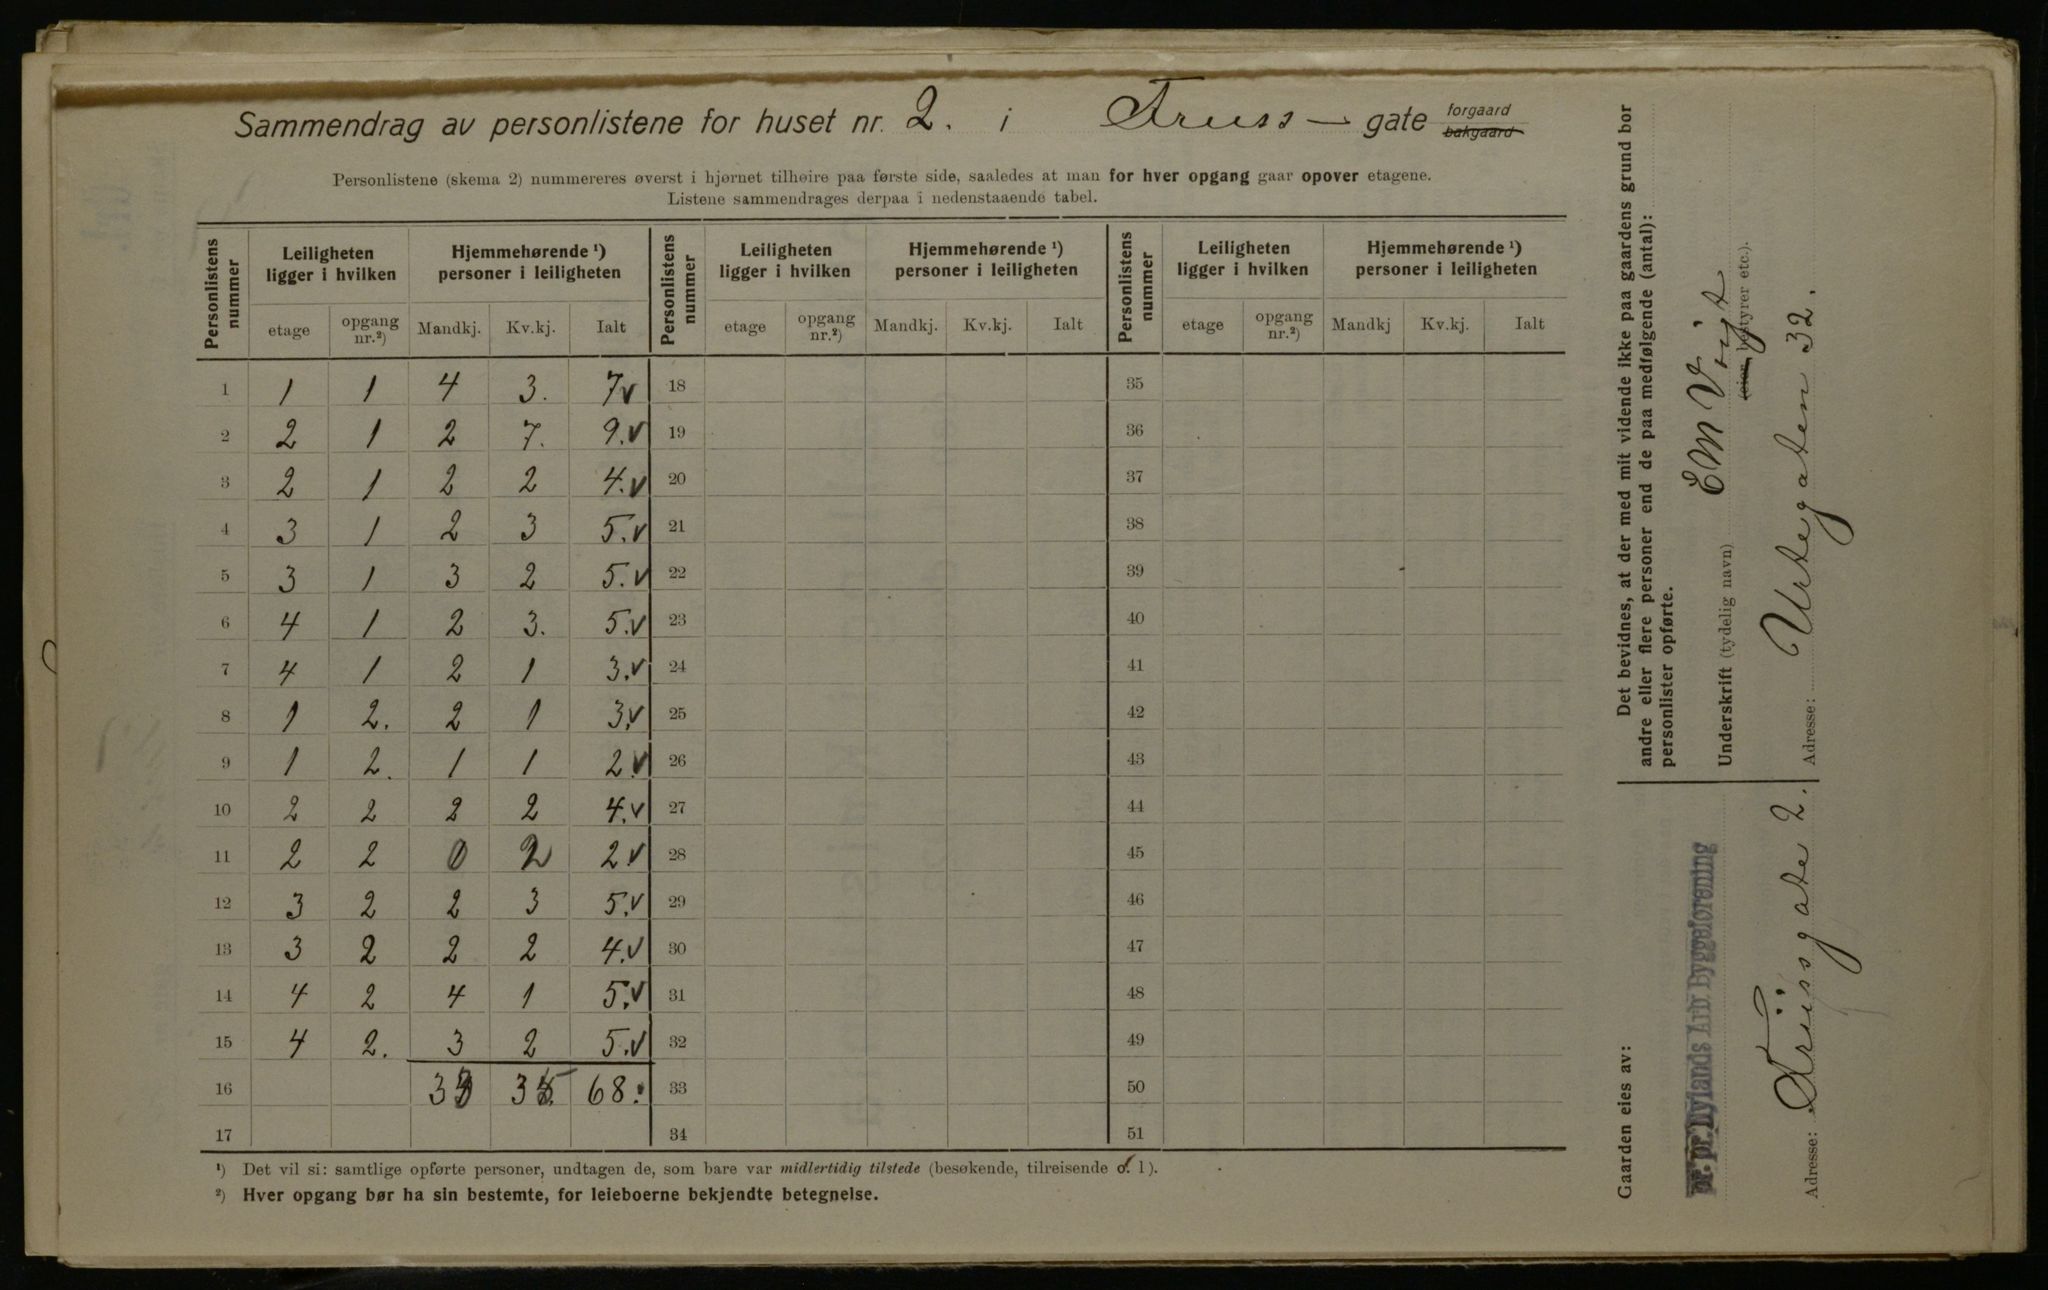 Sammendrag av personlistene for huset nr. 2. i Friiss — gate forgaard bakgaard
Personlistene (skema 2) nummereres øverst i hjørnet tilhøire paa første side, saaledes at man for hver opgang gaar opover etagene.
Listene sammendrages derpaa i nedenstaaende tabel.
Personlistens nummer | Leiligheten ligger i hvilken | Hjemmehørende ¹) personer i leiligheten | Personlistens nummer | Leiligheten ligger i hvilken | Hjemmehørende ¹) personer i leiligheten | Personlistens nummer | Leiligheten ligger i hvilken | Hjemmehørende ¹) personer i leiligheten
etage | opgang nr.²) | Mandkj. | Kv.kj. | Ialt | etage | opgang nr.²) | Mandkj. | Kv.kj. | Ialt | etage | opgang nr.²) | Mandkj | Kv.kj. | Ialt
1 1 1 4 3. 7v 18 35
2 2 1 2 7. 9.v 19 36
3 2 1 2 2 4.v 20 37
4 3 1 2 3 5.v 21 38
5 3 1 3 2 5.v 22 39
6 4 1 2 3. 5.v 23 40
7 4 1 2 1 3.v 24 41
8 1 2. 2 1 3.v 25 42
9 1 2. 1 1 2.v 26 43
10 2 2 2 2 4.v 27 44
11 2 2 0 2 2.v 28 45
12 3 2 2 3 5.v 29 46
13 3 2 2 2 4.v 30 47
14 4 2 4 1 5.v 31 48
15 4 2. 3 2 5.v 32 49
16 33 35 68. 33 50
17 34 51
¹) Det vil si: samtlige opførte personer, undtagen de, som bare var midlertidig tilstede (besøkende, tilreisende o. l).
²) Hver opgang bør ha sin bestemte, for leieboerne bekjendte betegnelse.
Det bevidnes, at der med mit vidende ikke paa gaardens grund bor
andre eller flere personer end de paa medfølgende (antal):
personlister opførte.
Underskrift (tydelig navn) E M Vigt
(eier bestyrer etc.).
Adresse: Urtegaten 32.
Gaarden eies av:
pr. pr. Nylands Arb. Byggeforening
Adresse: Friisgate 2.